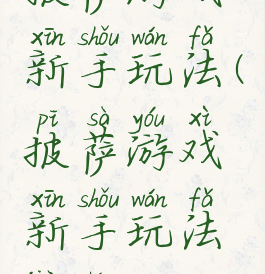 披萨游戏
xīn shǒu wán fǎ
新手玩法(
pī sà yóu xì
披萨游戏
xīn shǒu wán fǎ
新手玩法